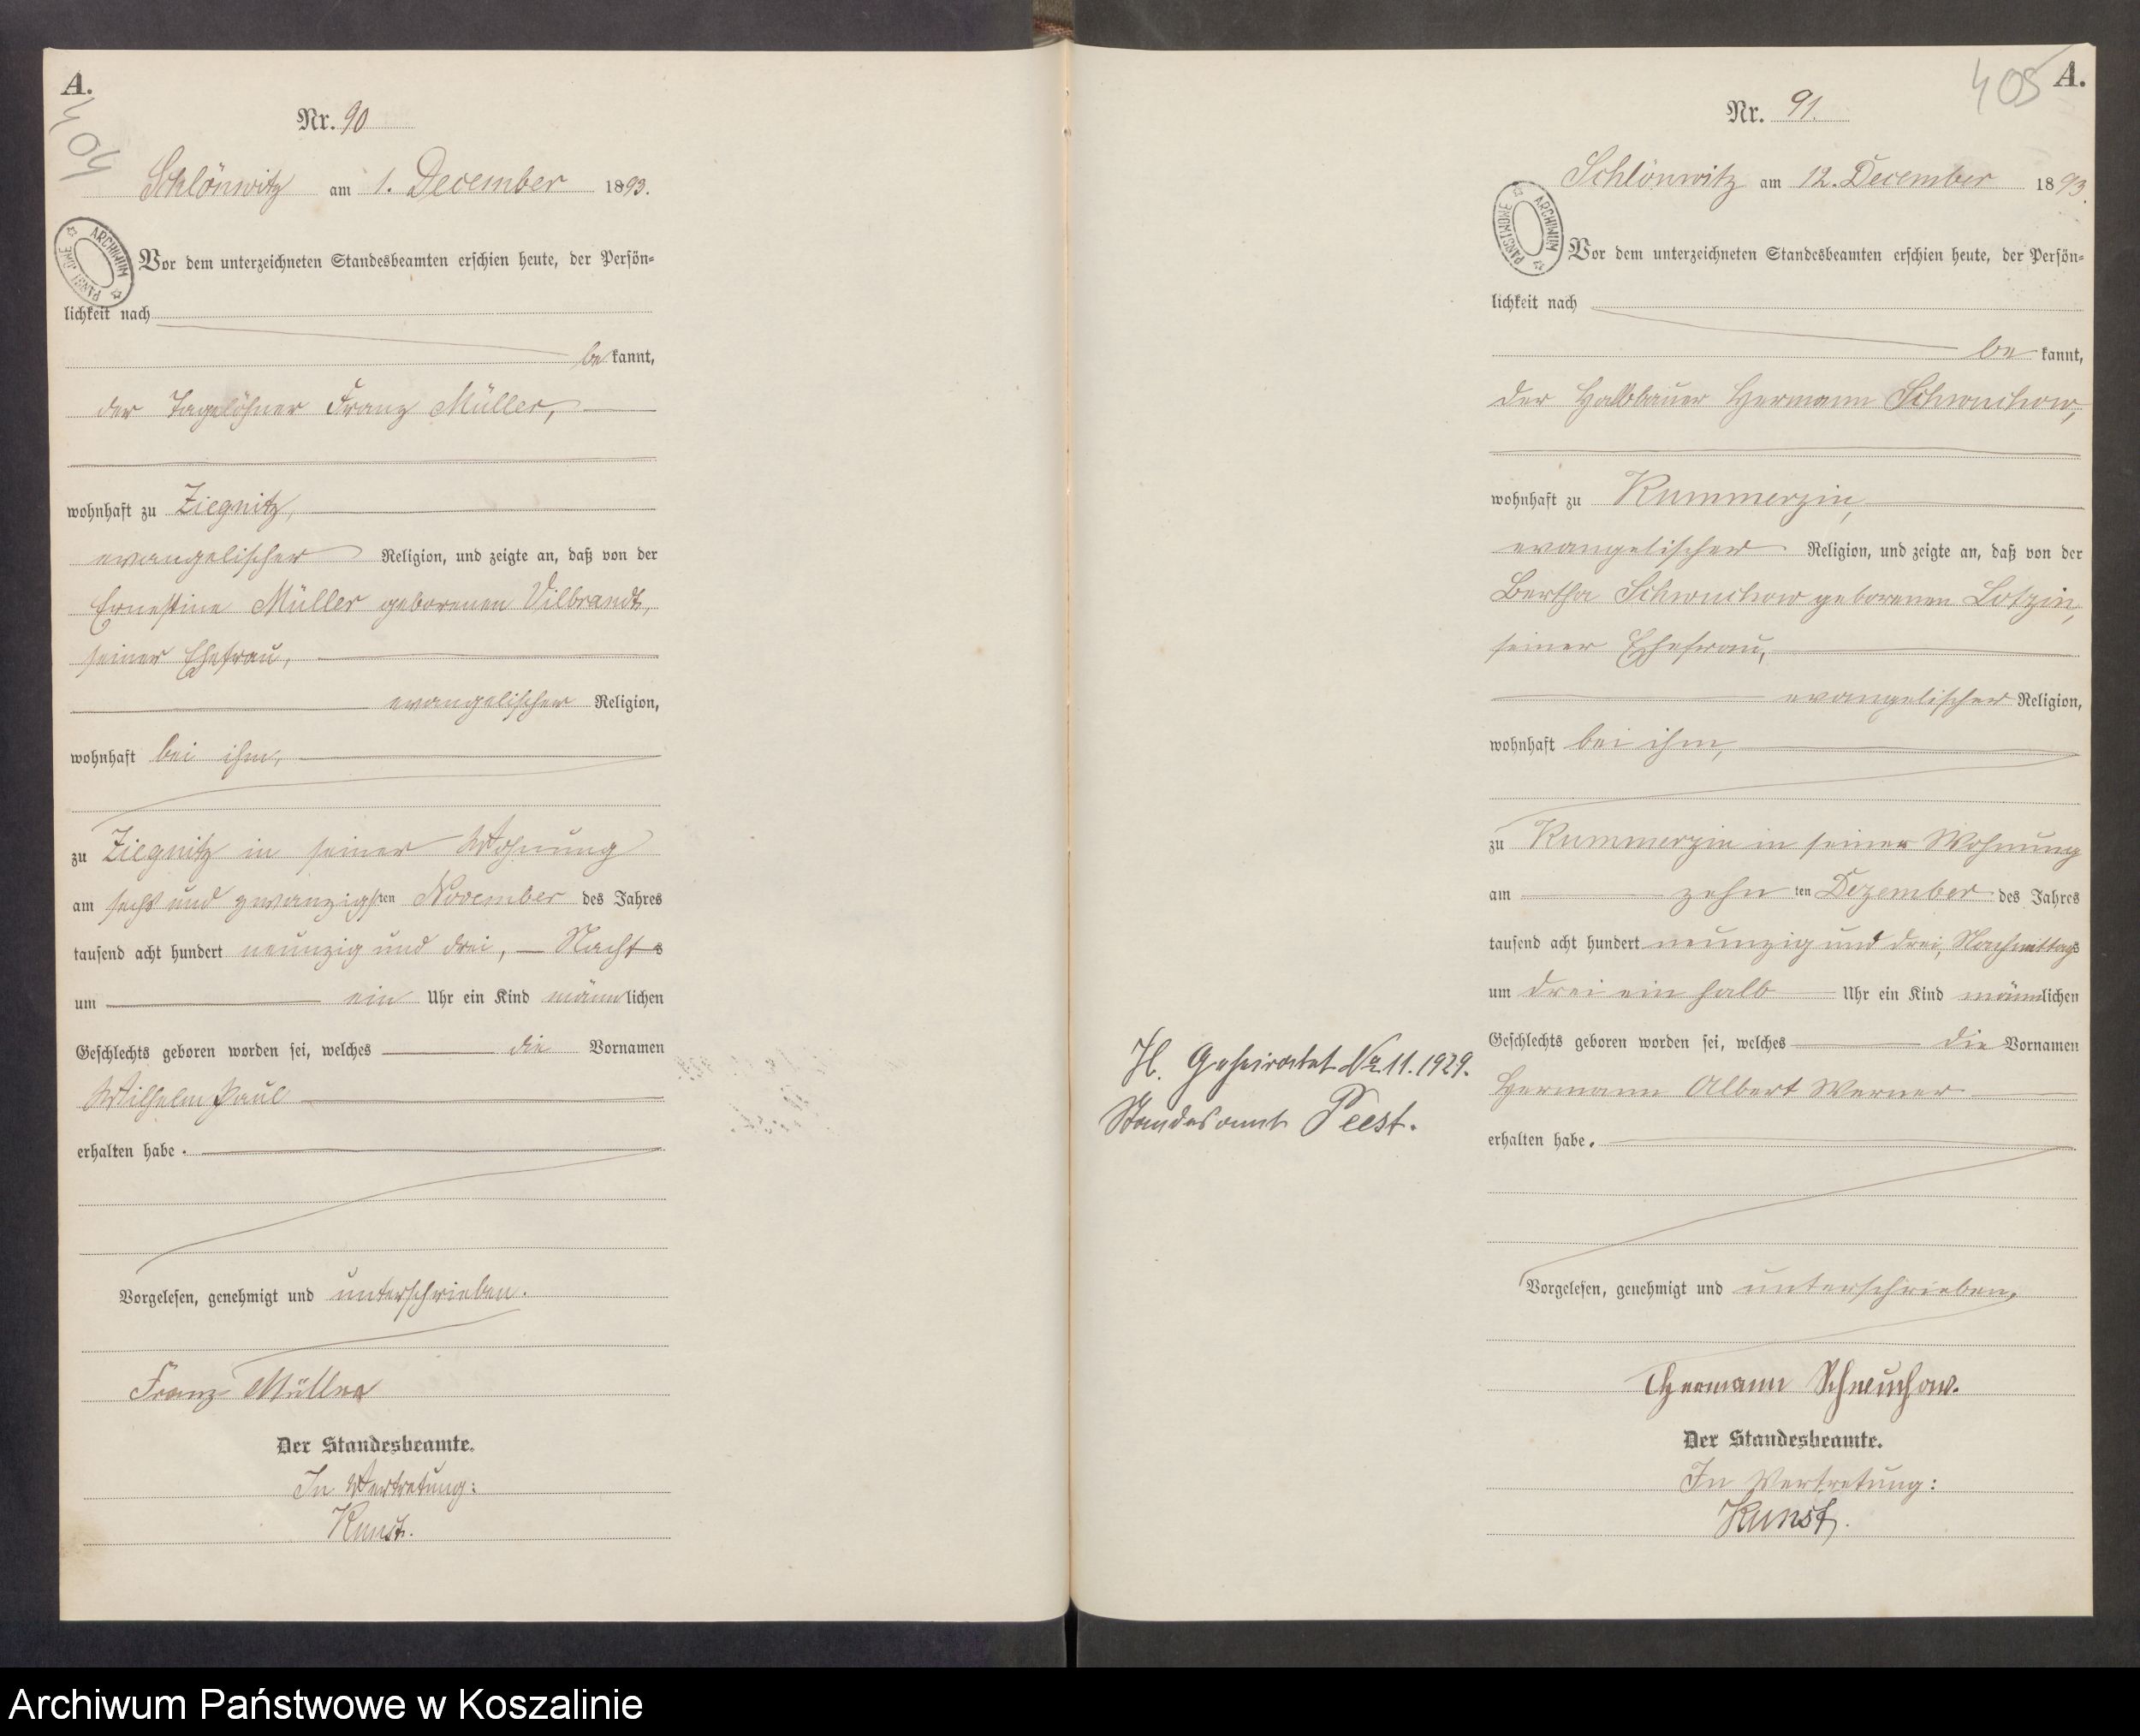 A.
404
Nr. 90
Schlönwitz am 1. December 1893.
ARCHIWUM
Vor dem unterzeichneten Standesbeamten erschien heute, der Persön-
lichkeit nach
be kannt,
der Tagelöhner Franz Müller,
wohnhaft zu Ziegnitz,
evangelischer Religion, und zeigte an, daß von der
Ernestine Müller geborenen Vilbrandt,
seiner Ehefrau,
evangelischer Religion,
wohnhaft bei ihm,
zu Ziegnitz in seiner Wohnung
am sechs und zwanzigsten November des Jahres
tausend acht hundert neunzig und drei, Nachts
um ein Uhr ein Kind männlichen
Geschlechts geboren worden sei, welches die Vornamen
Wilhelm Paul
erhalten habe.
Vorgelesen, genehmigt und unterschrieben.
Franz Müller
Der Standesbeamte.
In Vertretung:
Kunst.
405 A.
Nr. 91.
Schlönwitz am 12. December 1893.
ARCHIWUM PAŃSTWOWE
Vor dem unterzeichneten Standesbeamten erschien heute, der Persön-
lichkeit nach
be kannt,
der Halbbauer Hermann Schwuchow,
wohnhaft zu Kummerzin,
evangelischer Religion, und zeigte an, daß von der
Bertha Schwuchow geborenen Lotzin,
seiner Ehefrau,
evangelischer Religion,
wohnhaft bei ihm,
zu Kummerzin in seiner Wohnung
am zehn ten Dezember des Jahres
tausend acht hundert neunzig und drei, Nachmittags
um drei ein halb Uhr ein Kind männlichen
Geschlechts geboren worden sei, welches die Vornamen
Hermann Albert Werner
erhalten habe.
Vorgelesen, genehmigt und unterschrieben.
Hermann Schwuchow.
Der Standesbeamte.
In Vertretung:
Kunst.
H. Geheiratet Nr. 11. 1929.
Standesamt Peest.
Archiwum Państwowe w Koszalinie